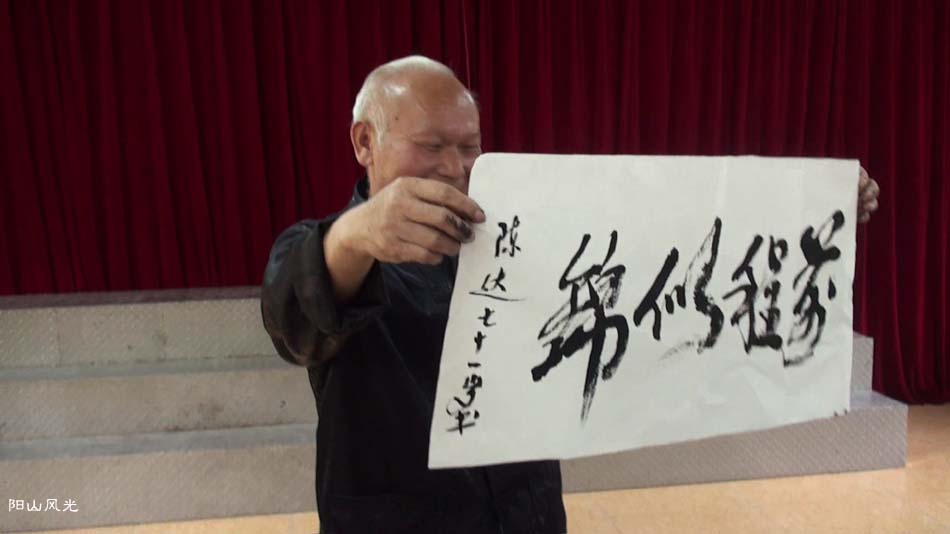 前程似锦
陈达七十一岁书
阳山风光